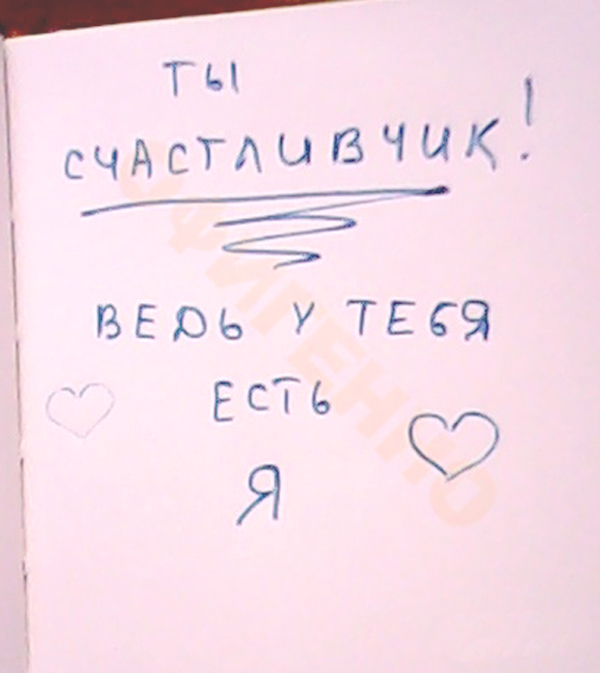 ТЫ
СЧАСТЛИВЧИК!
ВЕДЬ У ТЕБЯ
ЕСТЬ
Я
ОФИГЕННО